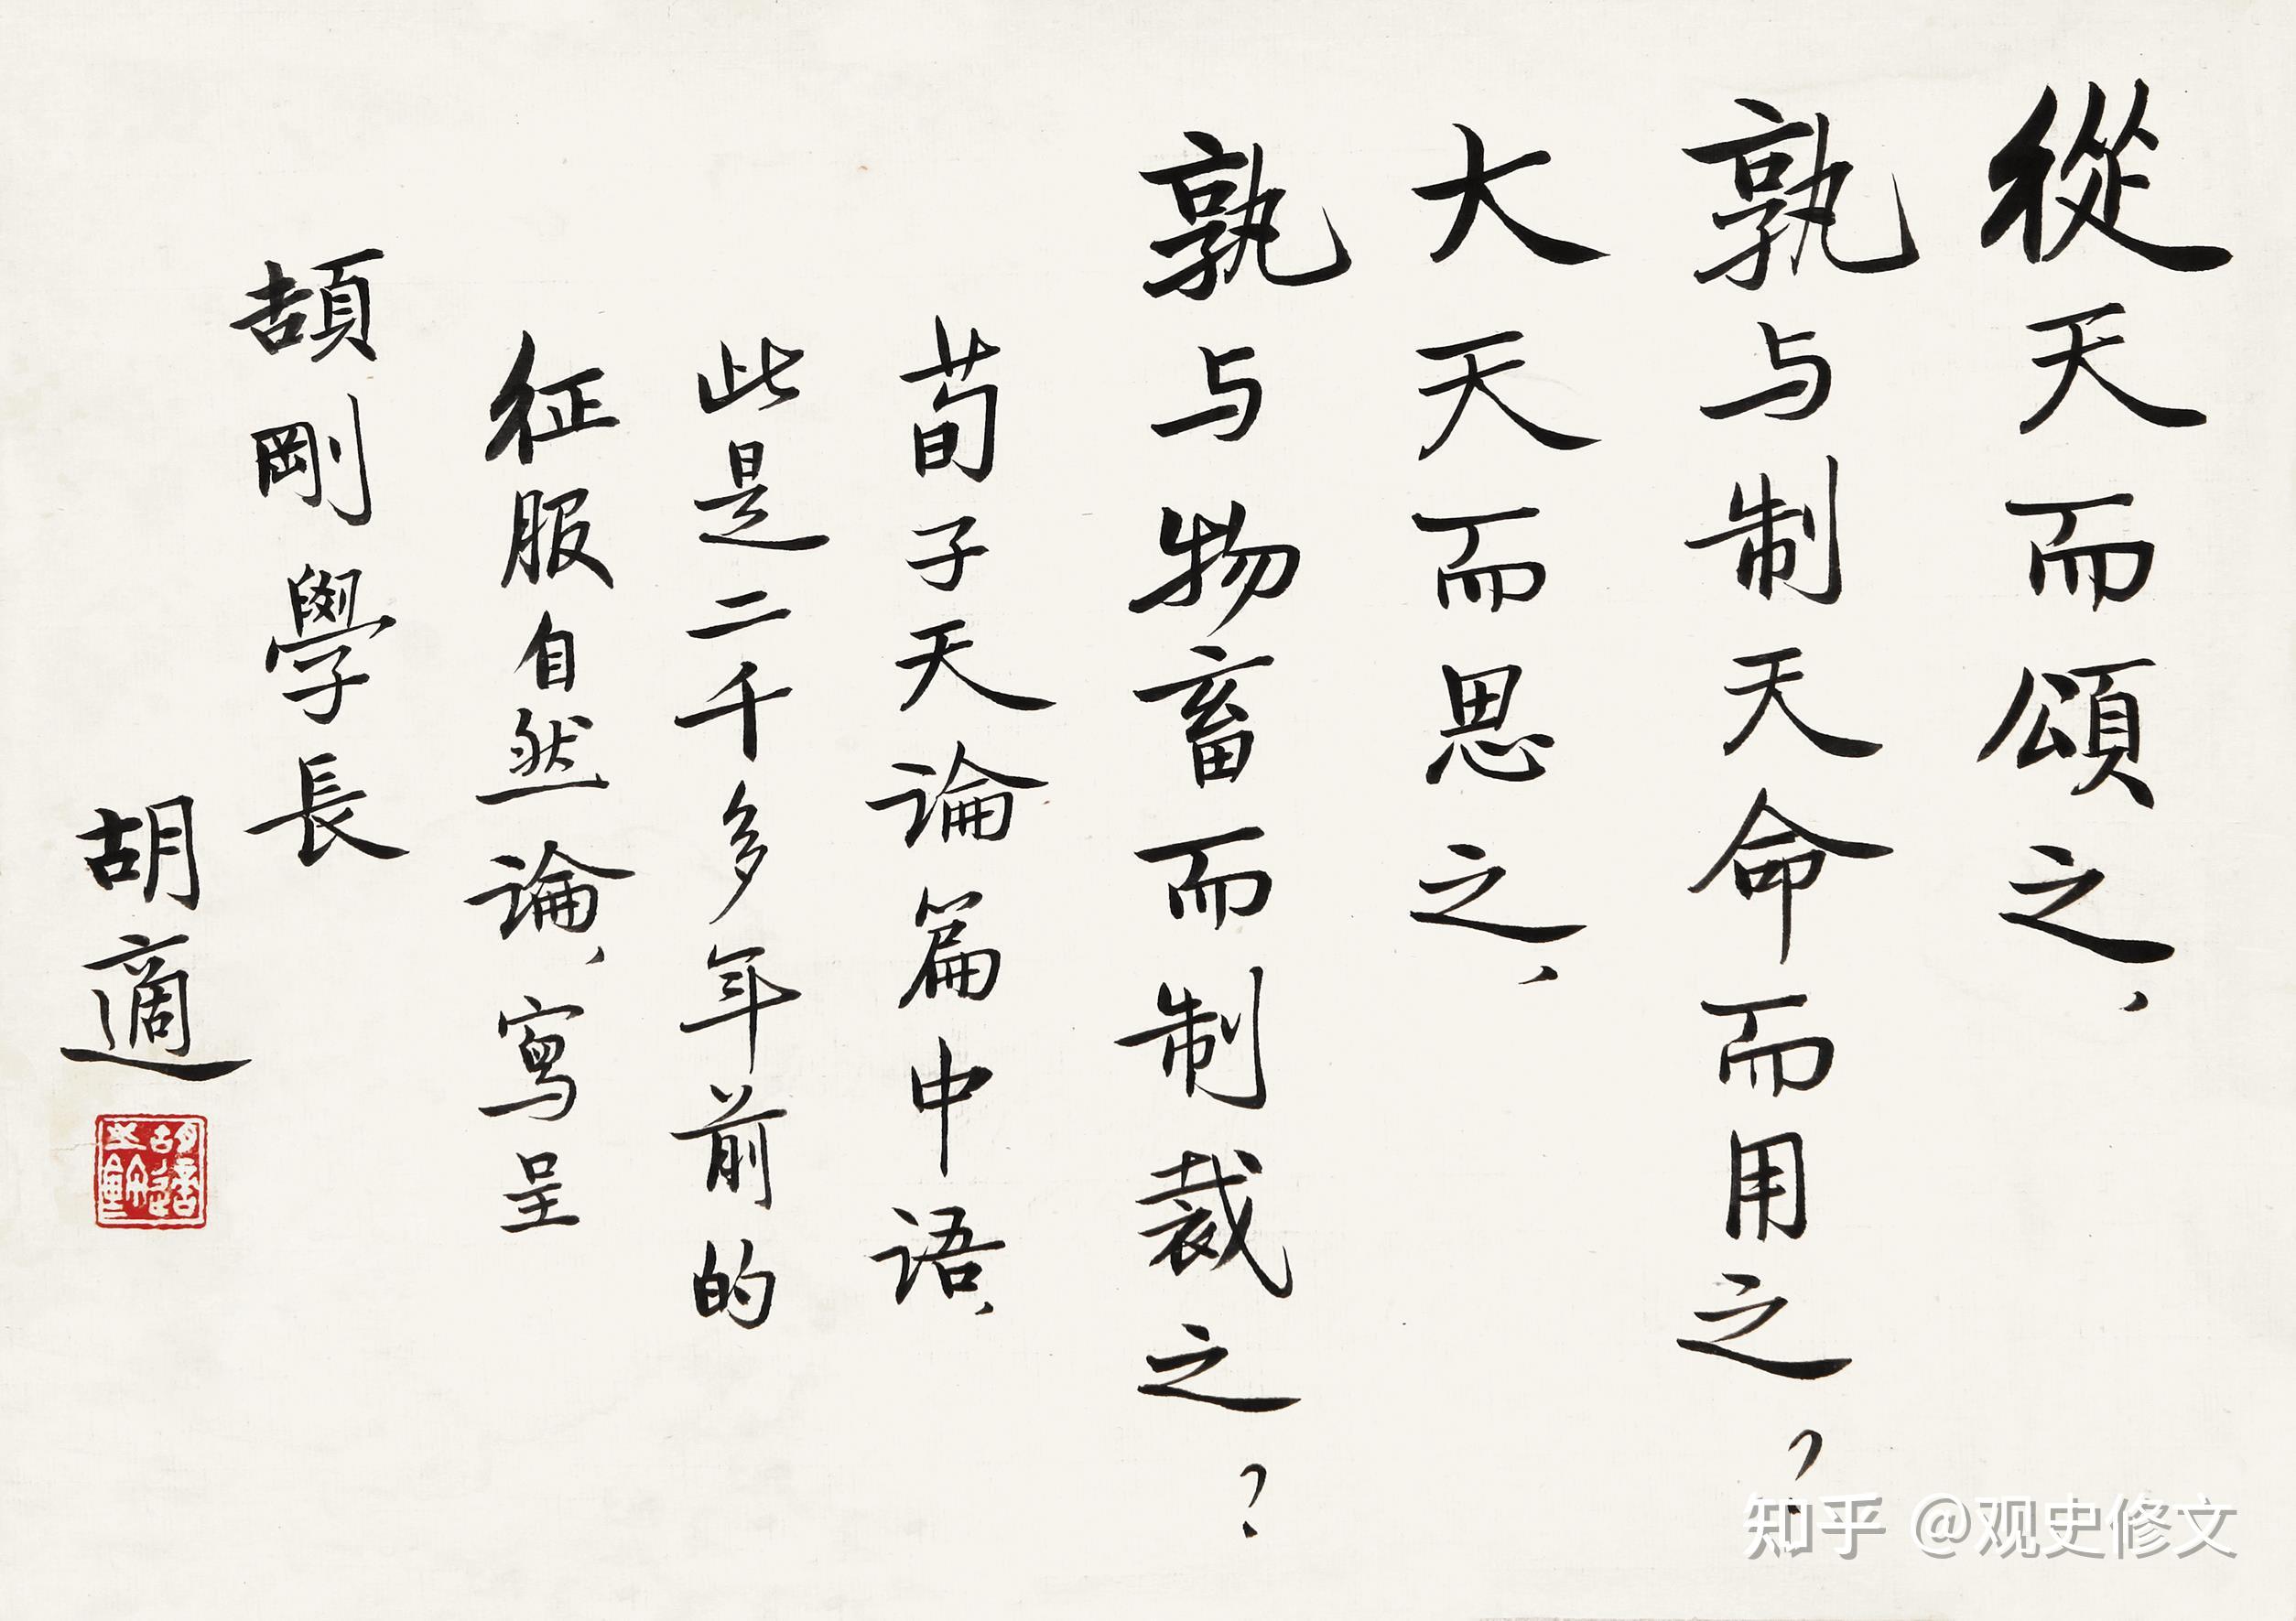 從天而頌之，
孰与制天命而用之？
大天而思之，
孰与物畜而制裁之？
荀子天論篇中语，
此是二千多年前的
征服自然論，寫呈
頡剛學長
胡適
胡適之鉥
知乎 @观史修文